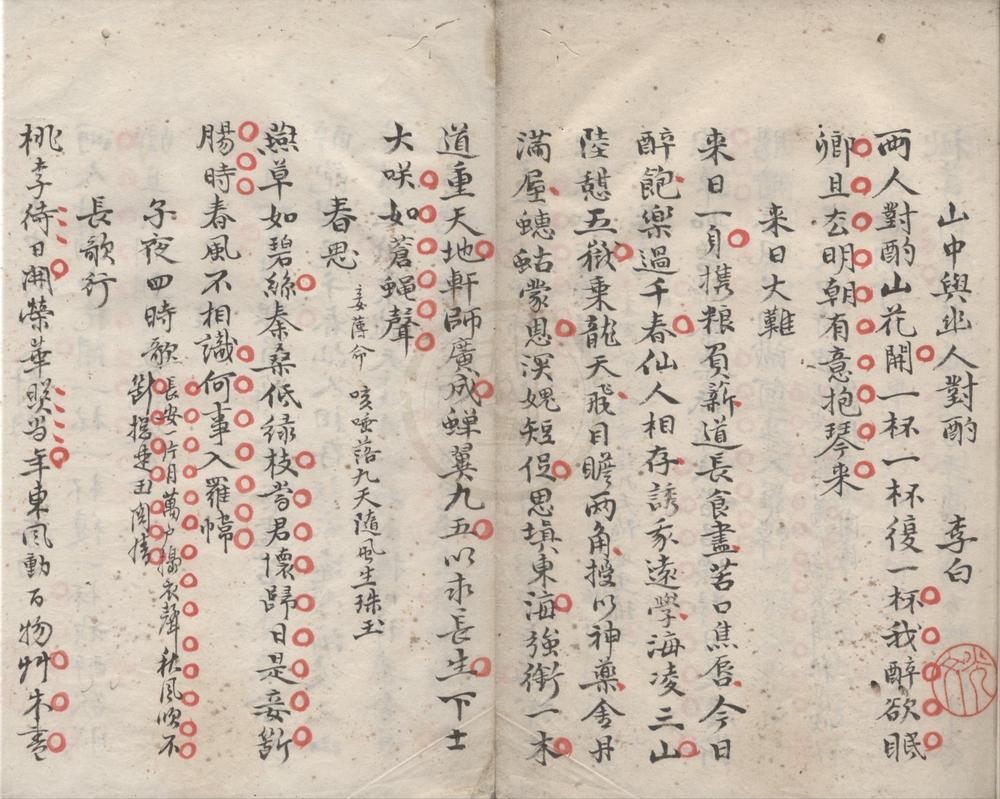 山中與幽人對酌 李白
兩人對酌山花開一杯一杯復一杯我醉欲眠
卿且去明朝有意抱琴来
来日大難
来日一身携粮負薪道長食盡苦口焦唇今日
醉飽樂過千春仙人相存誘我遠學海凌三山
陸憩五嶽乗龍天飛目瞻兩角授以神藥金丹
滿屋蟪蛄蒙恩深媿短促思填東海強銜一木
道重天地軒師廣成蟬翼九五以求長生下士
大咲如蒼蠅聲
春思
妾薄命 咳唾落九天随風生珠玉
燕草如碧絲秦桑低緑枝當君懷歸日是妾斷
腸時春風不相識何事入羅幃
子夜四時歌 長安片月萬户擣衣聲秋風吹不
斷總是玉関情
長歌行
桃李待日開榮華暎當年東風動百物艸木盡